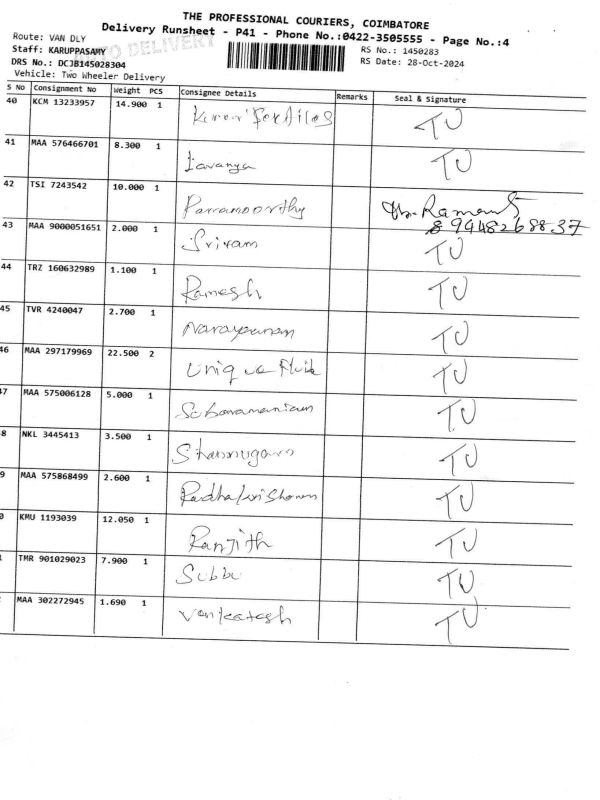 THE PROFESSIONAL COURIERS, COIMBATORE
Delivery Runsheet - P41 - Phone No.:0422-3505555 - Page No.:4
Route: VAN DLY
RS No.: 1450283
Staff: KARUPPASAMY
RS Date: 28-Oct-2024
DRS No.: DCJB145028304
Vehicle: Two Wheeler Delivery
S No Consignment No Weight PCS Consignee Details Remarks Seal & Signature
40 KCM 13233957 14.900 1 TU
41 MAA 576466701 8.300 1 Lavanya TU
42 TSI 7243542 10.000 1 Parramoorthy
89448268837
43 MAA 9000051651 2.000 1 Sriram TU
44 TRZ 160632989 1.100 1 Ramesh TU
45 TVR 4240047 2.700 1 Narayanan TU
46 MAA 297179969 22.500 2 Unique TU
47 MAA 575006128 5.000 1 TU
8 NKL 3445413 3.500 1 Shanmugam TU
9 MAA 575868499 2.600 1 TU
0 KMU 1193039 12.050 1 Ranjith TU
TMR 901029023 7.900 1 Subbu TU
MAA 302272945 1.690 1 Venkatesh TU